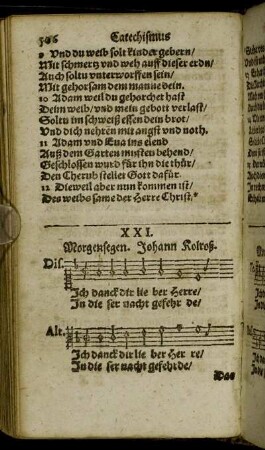 506 Catechismus
9 Vnd du weib solt kinder gebern/
Mit schmertz vnd weh auff dieser erdn/
Auch soltu vnterworffen sein/
Mit gehorsam dem manne dein.
10 Adam weil du gehorchet hast
Deim weib/vnd mein gebott verlast/
Soltu im schweiß essen dein brot/
Vnd dich nehren mit angst vnd noth.
11 Adam vnd Eua ins elend
Auß dem Garten musten behend/
Geschlossen wurd für ihn die thür/
Den Cherub stellet Gott dafür.
12 Dieweil aber nun kommen ist/
Des weibs same der Herre Christ.*
XXI.
Morgensegen. Johann Kolroß.
Dis.
Ich danck dir lie ber Herre/
In die ser nacht gefehr de/
Alt.
Ich danck dir lie ber Her re/
In die ser nacht gefehr de/
Das